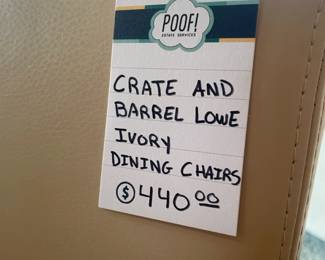 POOF!
ESTATE SERVICES
CRATE AND
BARREL LOWE
IVORY
DINING CHAIRS
$440.00